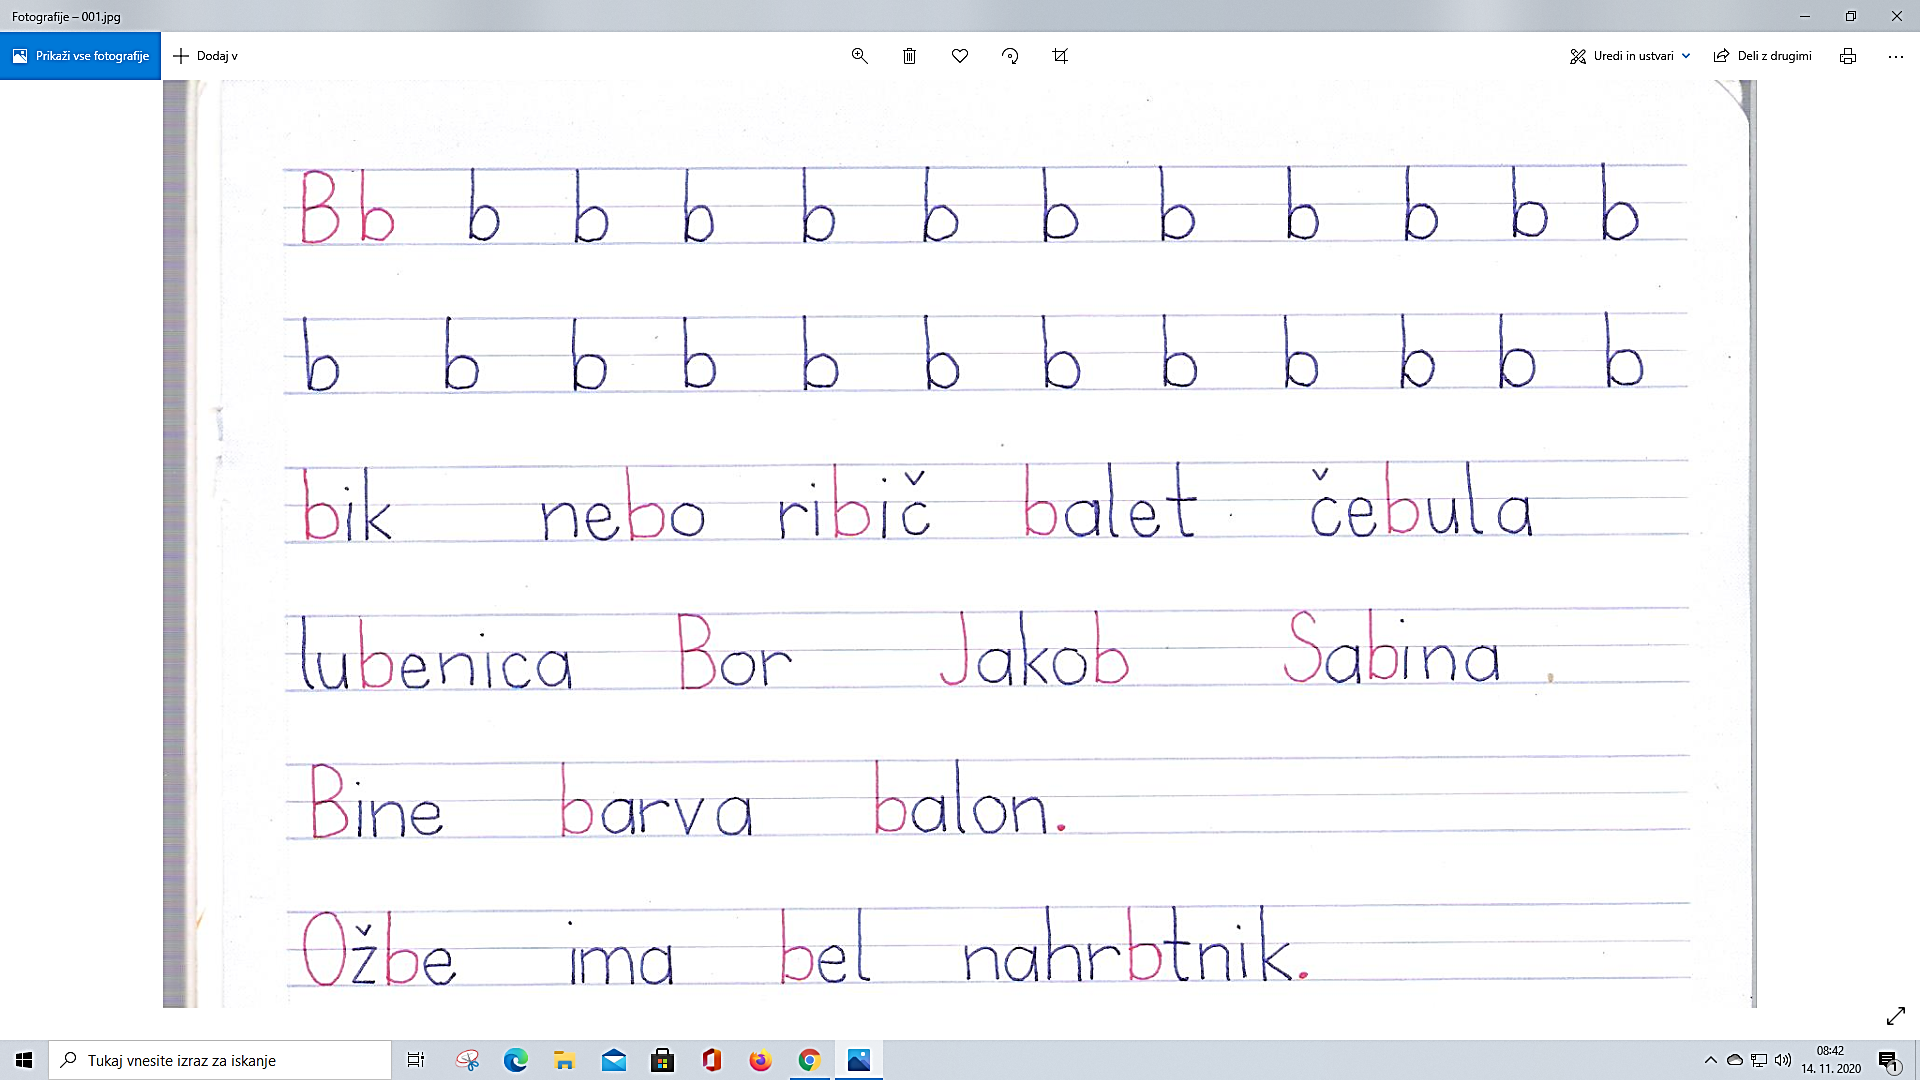 Fotografije – 001.jpg
Prikaži vse fotografije Dodaj v Uredi in ustvari Deli z drugimi
B b b b b b b b b b b b b
b b b b b b b b b b b b
bik nebo ribič balet čebula
lubenica Bor Jakob Sabina
Bine barva balon.
Ožbe ima bel nahrbtnik.
Tukaj vnesite izraz za iskanje
08:42
14. 11. 2020
1